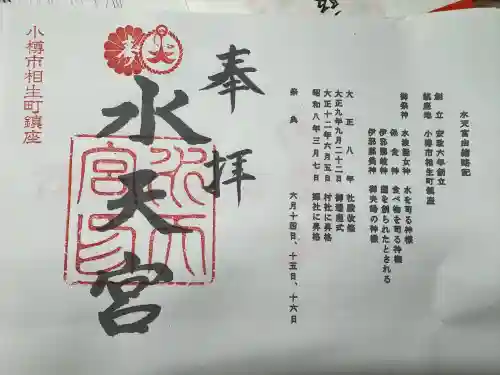 水天宮由緒略記
創立 安政六年創立
鎮座地 小樽市相生町鎮座
御祭神 水波能女神 水を司る神様
保食神 食べ物を司る神様
伊邪那岐神 国を創られたとされる
伊邪那美神 御夫婦の神様
大正八年 社殿改築
大正九年九月二十二日 御遷座式
大正十二年六月五日 村社に昇格
昭和八年三月七日 郷社に昇格
祭典 六月十四日、十五日、十六日
奉拝
水天宮
奉
水天宮印
小樽市相生町鎮座